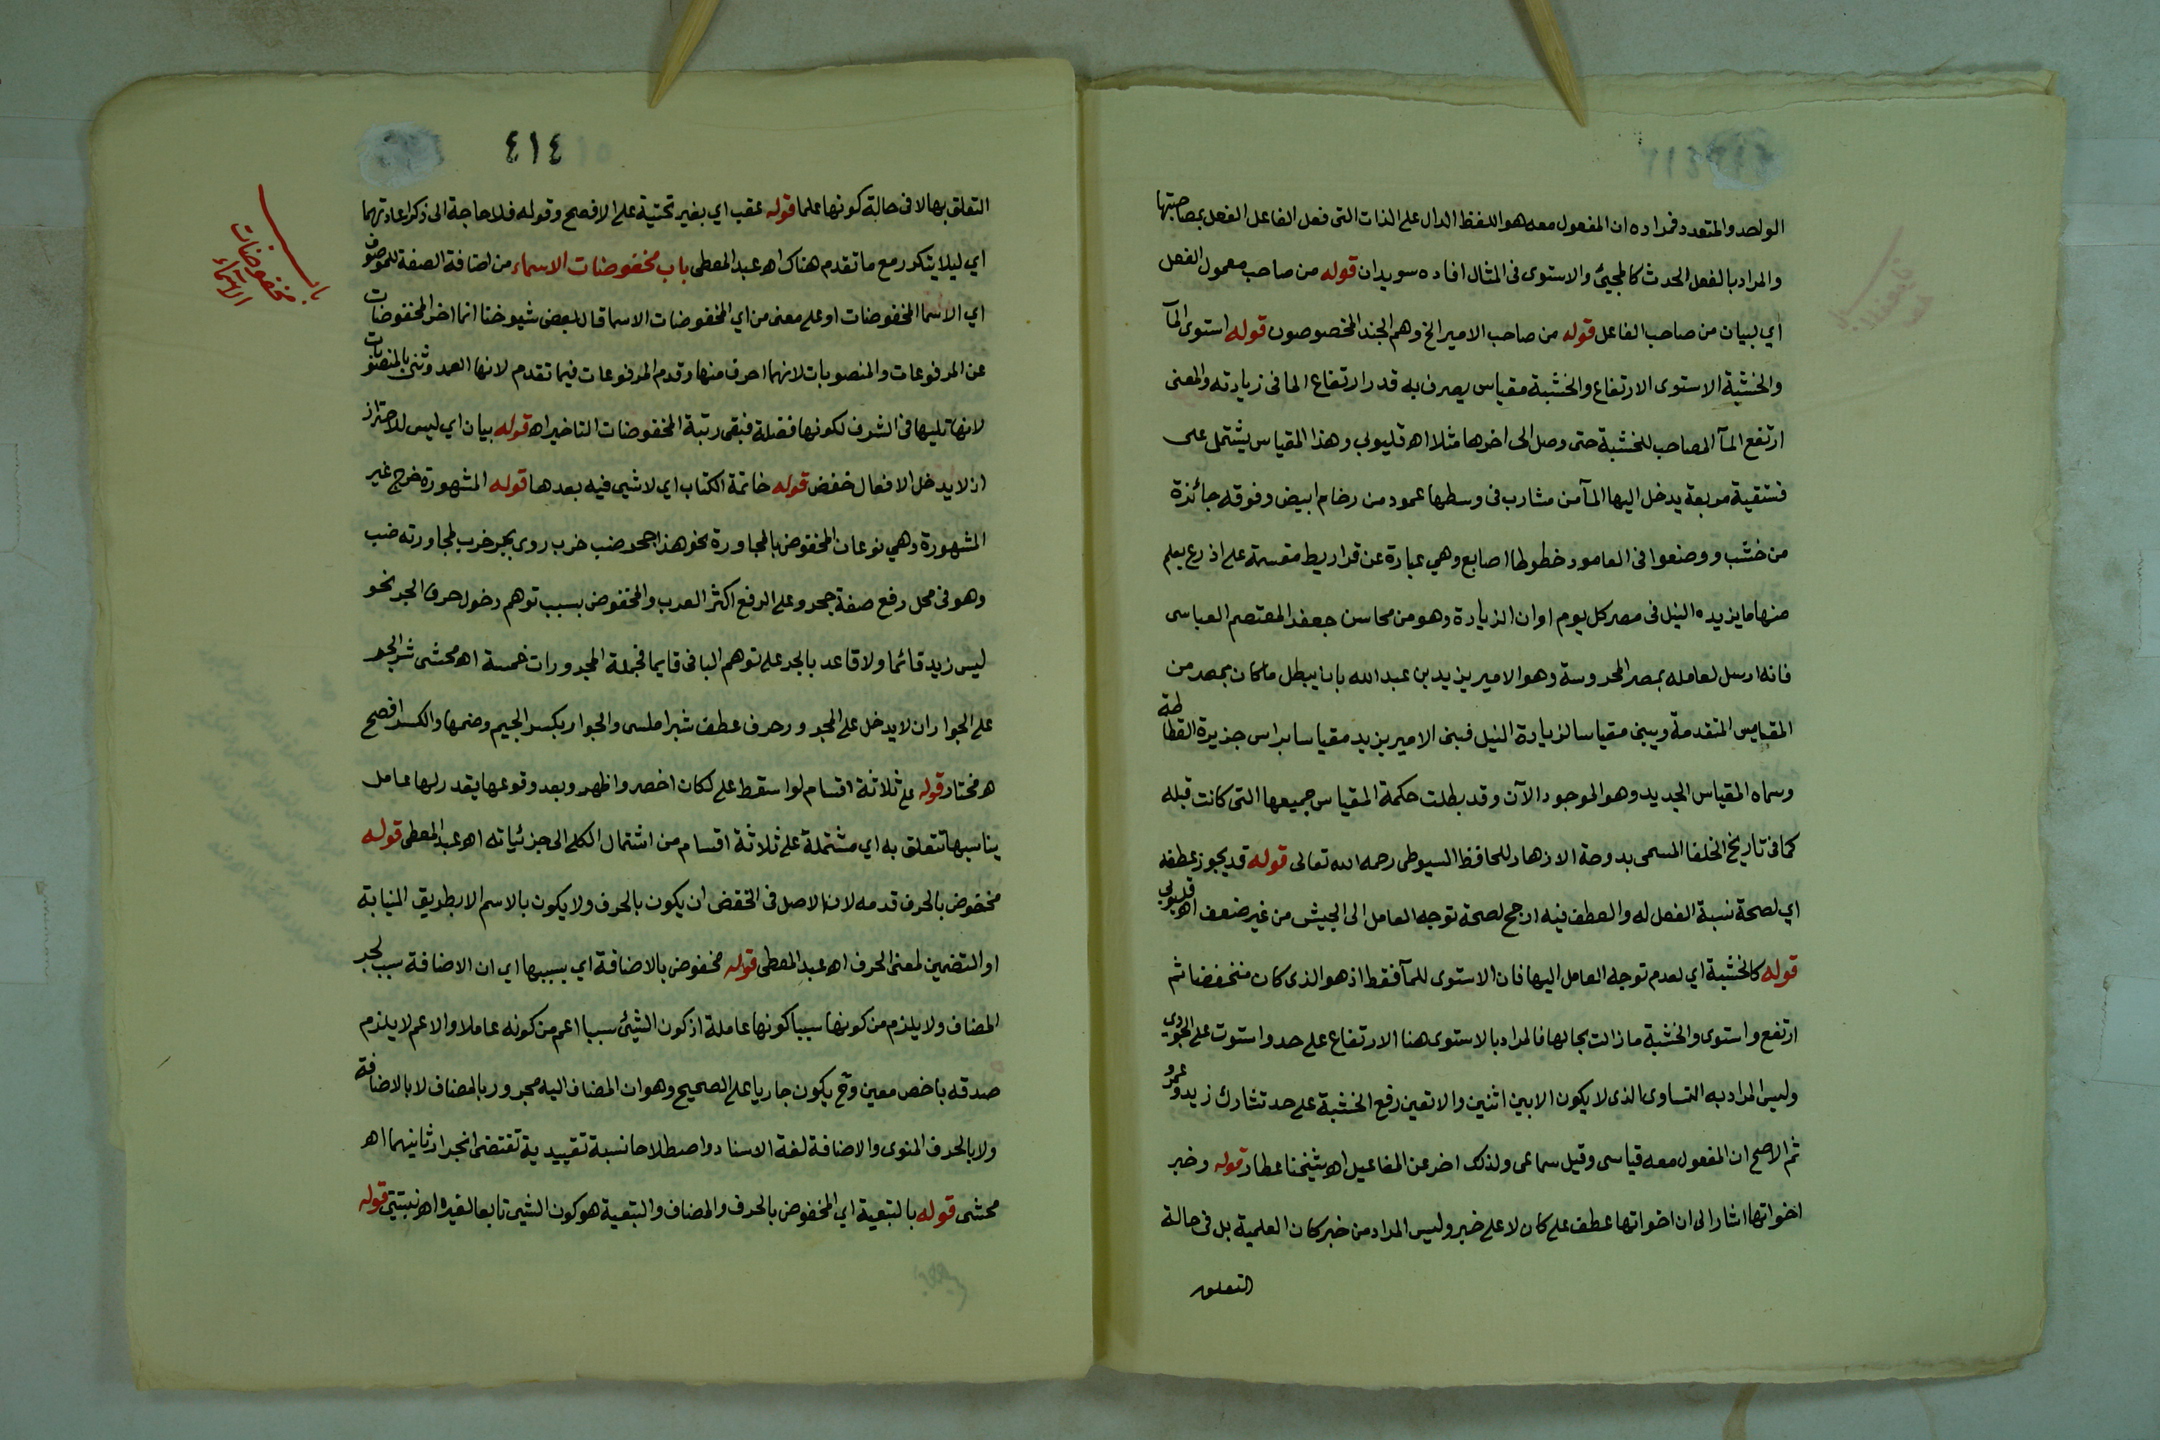 الواحد والمتعدد فمراده ان المفعول معه هو اللفظ الدال على الذات التى فعل الفاعل الفعل بمصاحبتها
والمراد بالفعل الحدث كالمجيئ والاستوى فى المثال افاده سويدان قوله من صاحب معمول الفعل
اي لبيان من صاحب الفاعل قوله من صاحب الامير الخ وهم الجند المخصوصون قوله استوى المآ
والخشبة الاستوى الارتفاع والخشبة مقياس يعرف به قدر ارتفاع الما فى زيادته والمعنى
ارتفع المآ المصاحب للخشبة حتى وصل الى اخرها مثلا اه قليوبى وهذا المقياس يشتمل على
فسقية مربعة يدخل اليها المآ من مشارب فى وسطها عمود من رخام ابيض وفوقه جائزة
من خشب ووضعوا فى العامود خطوطا اصابع وهي عبارة عن قراريط مقسمة على اذرع يعلم
منها ما يزيده النيل فى مصر كل يوم اوان الزيادة وهو من محاسن جعفر المعتصم العباسى
فانه ارسل لعامله بمصر المحروسة وهو الامير يزيد بن عبد الله بان يبطل ما كان بمصر من
المقاييس المتقدمة ويبنى مقياسا لزيادة النيل فبنى الامير يزيد مقياسا براس جزيرة القطا
طة
وسماه المقياس الجديد وهو الموجود الآن وقد بطلت حكمة المقياس جميعها التى كانت قبله
كما فى تاريخ الخلفا المسمى بدوحة الازهار للحافظ السيوطى رحمه الله تعالى قوله قد يجوز عطفه
اي لصحة نسبة الفعل له والعطف فيه ارجح لصحة توجه العامل الى الجيش من غير ضعف اه قليوبى
قوله كالخشبة اي لعدم توجه العامل اليها فان الاستوى للمآ فقط اذ هو الذى كان منخفضا ثم
ارتفع واستوى والخشبة ما زالت بحالها فالمراد بالاستوى هنا الارتفاع على حد واستوت على الجودى
وليس المراد به التساوى الذى لا يكون الا بين اثنين والا تعين رفع الخشبة على حد تشارك زيد وعمرو
ثم الاصح ان المفعول معه قياسى وقيل سماعى ولذلك اخر عن المفاعيل اه شيخنا عطار قوله وخبر
اخواتها اشار الى ان اخواتها عطف على كان لا على خبر وليس المراد من خبر كان العلمية بل فى حالة
التعلق
٤١٤
باب مخفوضات الاسماء
التعلق بها لا فى حالة كونها علما قوله عقب اي بغير تحتية على الافصح وقوله فلا حاجة الى ذكر اعادتهما
اي ليلا يتكرر مع ما تقدم هناك اه عبد المعطى باب مخفوضات الاسماء من اضافة الصفة للموصوف
اي الاسما المخفوضات او على معنى من اي المخفوضات الاسما قال بعض شيوخنا انما اخر المخفوضات
عن المرفوعات والمنصوبات لانهما احرف منها وقدم المرفوعات فيما تقدم لانها العمد وثنى بالمنصوبات
لانها تليها فى الشرف لكونها فضلة فبقى رتبة المخفوضات التاخير اه قوله بيان اي ليس للاحتراز
اذ لا يدخل الافعال خفض قوله خاتمة الكتاب اي لا شيى فيه بعدها قوله المشهورة خرج غير
المشهورة وهي نوعان المخفوض بالمجاورة نحو هذا جحر ضب خرب روى بجر خرب لمجاورته ضب
وهو فى محل رفع صفة جحر وعلى الرفع اكثر العرب والمخفوض بسبب توهم دخول حرف الجر نحو
ليس زيد قائما ولا قاعد بالجر على توهم البا فى قايما فجملة المجرورات خمسة اه محشى شرط الجر
على الجوار ان لا يدخل على المجرور حرف عطف شبراملسى والجوار بكسر الجيم وضمها والكسر افصح
اه مختار قوله على ثلاثة اقسام لو اسقط على لكان اخصر واظهر وبعد وقوعها يقدر لها عامل
يناسبها تتعلق به اي مشتملة على ثلاثة اقسام من اشتمال الكلى الى جزئياته اه عبد المعطى قوله
مخفوض بالحرف قدمه لان الاصل فى الخفض ان يكون بالحرف ولا يكون بالاسم الا بطريق النيابة
او التضمين لمعنى الحرف اه عبد المعطى قوله مخفوض بالاضافة اي بسببها اي ان الاضافة سبب لجر
المضاف ولا يلزم من كونها سببا كونها عاملة اذ كون الشيئ سببا اعم من كونه عاملا والاعم لا يلزم
صدقه باخص معين وح يكون جاريا على الصحيح وهو ان المضاف اليه مجرور بالمضاف لا بالاضافة
ولا بالحرف المنوى والاضافة لغة الاسناد واصطلاحا نسبة تقييدية تقتضى انجرار ثانيهما اه
محشى قوله بالتبعية اي المخفوض بالحرف والمضاف والتبعية هو كون الشيى تابعا لغيره اه نبتيتى قوله